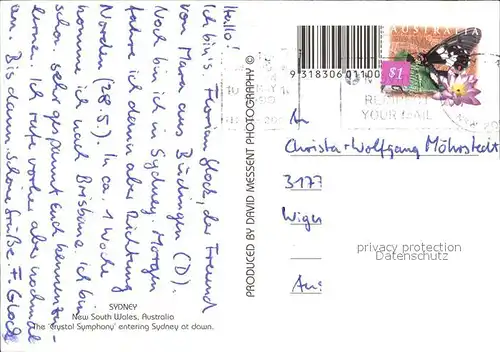 Hallo!
Ich bin's Florian Glock, der Freund
von Mara aus Büdingen (D).
Noch bin ich in Sydney. Morgen
fahre ich dann aber Richtung
Norden (28.5). In ca. 1 Woche
komme ich nach Brisbane. Ich bin
schon sehr gespannt Euch kennenzu-
lernen. Ich rufe vorher aber nochmal
an. Bis dann. Schöne Grüße F. Glock
SYDNEY
New South Wales, Australia
The 'Crystal Symphony' entering Sydney at dawn.
PRODUCED BY DAVID MESSENT PHOTOGRAPHY ©
9 318306 01100
AUSTRALIA
$1
YOUR MAIL
An
Christa + Wolfgang Möhrstedt
3177
Wiger
Aus
privacy protection
Datenschutz